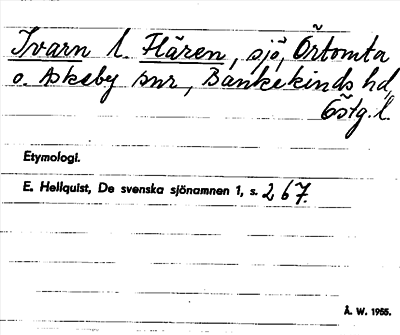 Ivarn l. Flären, sjö, Örtomta
o. Askeby snr, Bankekinds hd,
Östg. l.
Etymologi.
E. Hellquist, De svenska sjönamnen 1, s. 267.
Å. W. 1955.